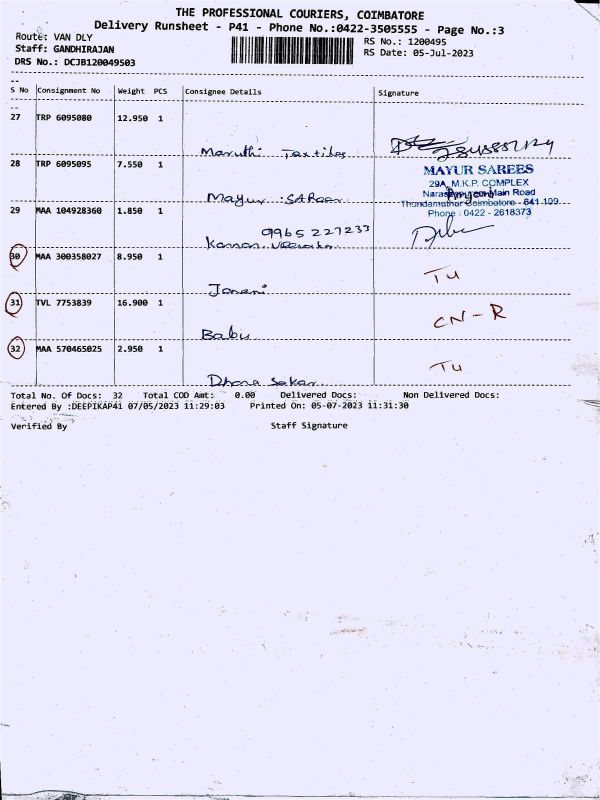 THE PROFESSIONAL COURIERS, COIMBATORE
Delivery Runsheet - P41 - Phone No.:0422-3505555 - Page No.:3
Route: VAN DLY RS No.: 1200495
Staff: GANDHIRAJAN RS Date: 05-Jul-2023
DRS No.: DCJB120049503
S No Consignment No Weight PCS Consignee Details Signature
27 TRP 6095080 12.950 1
Maruthi Textiles
28 TRP 6095095 7.550 1
MAYUR SAREES
29A, M.K.P. COMPLEX
Main Road
Coimbatore - 641 109
Phone : 0422 - 2618373
Mayur Sarees
29 MAA 104928360 1.850 1
9965227233
Kannan
30 MAA 300358027 8.950 1
TU
Janani
31 TVL 7753839 16.900 1
CN-R
Babu
32 MAA 570465025 2.950 1
TU
Dhana Sekar
Total No. Of Docs: 32 Total COD Amt: 0.00 Delivered Docs: Non Delivered Docs:
Entered By :DEEPIKAP41 07/05/2023 11:29:03 Printed On: 05-07-2023 11:31:30
Verified By Staff Signature